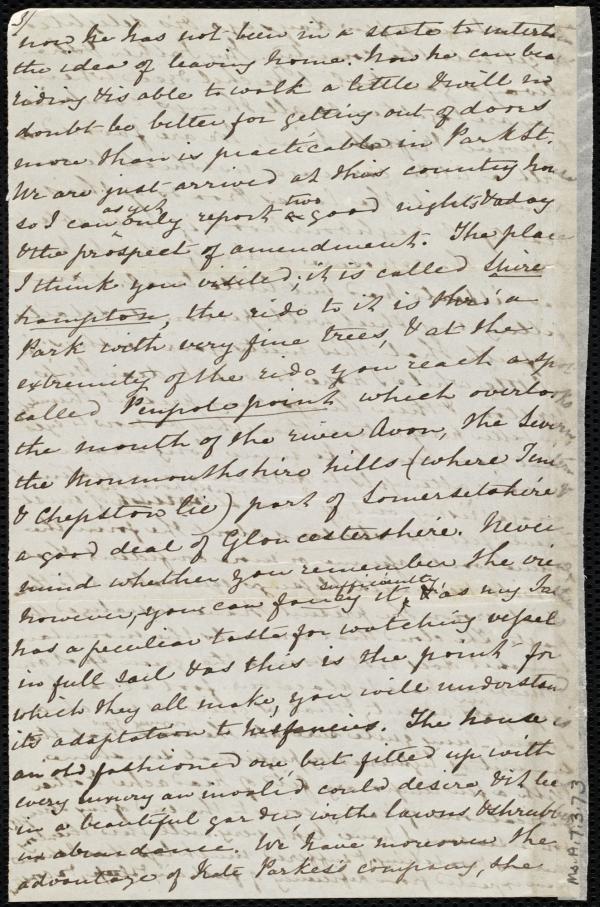 3/
now he has not been in a state to
the idea of leaving home. Now he can bea
riding & is able to walk a little & will no
doubt be better for getting out of doors
more than is practicable in Park St.
We are just arrived at this country hou
so I can as yet only report two good nights & a day
& the prospect of amendment. The plac
I think you visited; it is called Shire
hampton, the ride to it is thro' a
Park with very fine trees, & at the
extremity of the ride you reach a sp
called Penpole point which overlook
the mouth of the river Avon, the Sever
the Monmouthshire hills (where
& Chepstow lie) part of Somersetshire
a good deal of Gloucestershire. Never
mind whether you remember the vie
however, you can fancy it sufficiently, & as my
has a peculiar taste for watching vessel
in full sail & as this is the point for
which they all make, you will understand
its adaptation to his fancies. The house is
an old fashioned one but fitted up with
every luxury an invalid could desire, & it lie
in a beautiful garden, with lawns & shrubb
in abundance. We have moreover the
advantage of Kate Parkes's company, she
Ms.A.7.3.73